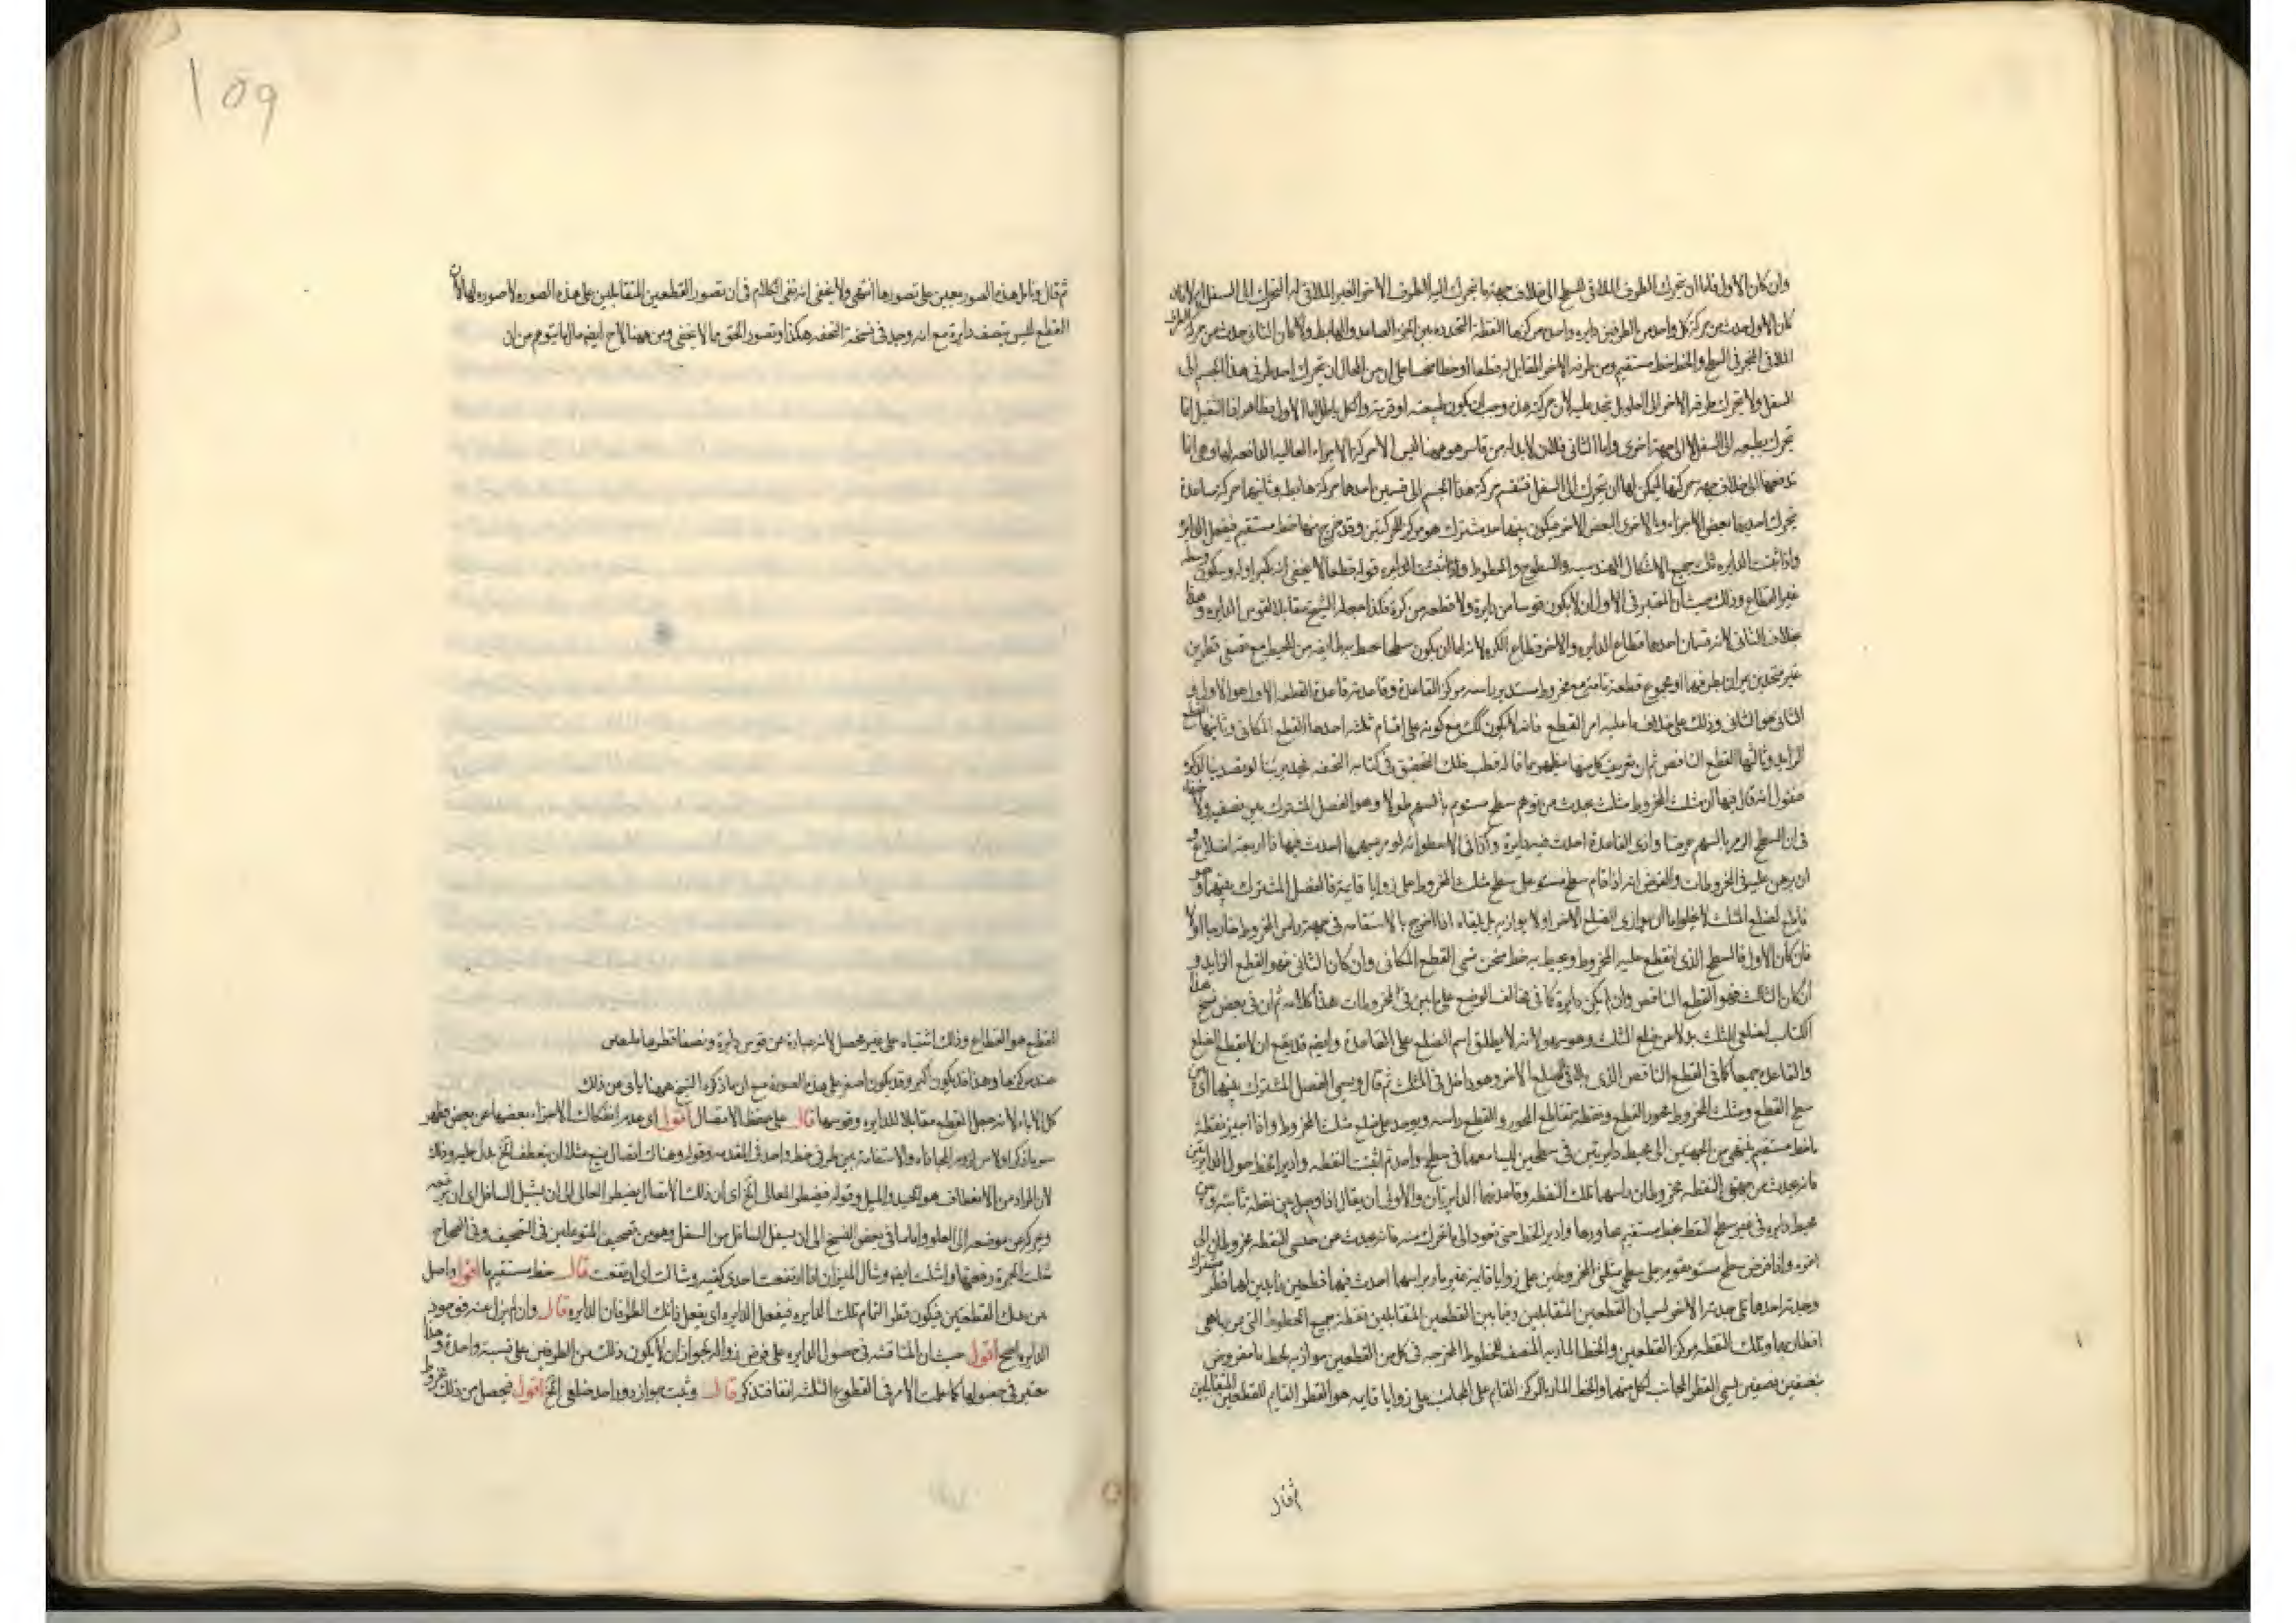 وان كان الاول فاما ان يتحرك الطرف الملاقي للسطح الى خلاف جهة ما يتحرك اليه الطرف الاخر الغير الملاقي له
كان الاول حدث من حركة كل واحد من الطرفين دايره واحده مركزها النقطة المتحدده بين الجزء الصاعد والهابط وان كان الثاني حدث من حركة الطرف
الملاقي المنجر في السطح والخط خط مستقيم ومن طرفه الاخر المقابل له قطعا او خطا منحنيا على ان من المحال ان يتحرك احد طرفي هذا الجسم الى
السفل ولا يتحرك طرفه الاخر الى العلو لان حركته هذه وجب ان يكون طبيعته او قسرية والكل باطل اما الاول فظاهر اذ الثقيل انما
يتحرك بطبعه الى السفل لا الى جهة اخرى واما الثاني فلانه لا بد له من قاسر هو ههنا ليس الا حركة الاجزاء العالية الدافعه لها وهي انما
تدفعها الى خلاف جهة حركتها ليمكن لها ان يتحرك الى السفل فتنقسم حركة هذا الجسم الى قسمين احدهما حركة هابط وثانيهما حركة صاعدة
يتحرك احديهما بعض الاجزاء وبالاخرى البعض الاخر فيكون بينهما حد مشترك هو مركز للحركتين وقد خرج منها خط مستقيم فيفعل الدايرة
واذا ثبتت الدايره ثبت جميع الاشكال الهندسيه والسطوح والخطوط قوله قطعا لا يخفى
غير القطاع وذلك حيث ان المعتبر في الاول ان لا يكون قوسا من دايرة ولا قطعه من كرة فكذا جعله الشيخ مقابلا لقوس الدايره وهذا
بخلاف الثاني لانه قسمان احدهما قطاع الدايره والاخر قطاع الكره لانه اما ان يكون سطحا يحيط به طايفه من المحيط مع نصفي قطرين
غير متحدين يمران بطرفيها او مجموع قطعة تامة مع مخروط مستدير راسه مركز القاعدة وقاعدته قاعدة القطعه الاول هو الاول و
الثاني هو الثاني وذلك على خلاف ما عليه امر القطع فانه لا يكون كك مع كونه على اقسام ثلثه احدها القطع المكافي وثانيها القطع
الزايد وثالثها القطع الناقص ثم ان تعريف كل منها يظهر بما قاله قطب فلك التحقيق في كتابه التحفه
فنقول انه قال فيها ان مثلث المخروط مثلث يحدث من توهم سطح مستو مر بالسهم طولا وهو الفصل المشترك بين نصفيه ولا خفاء
في ان السطح المار بالسهم عرضا وازى القاعدة احدث فيه دايرة وكذا في الاسطوانه لو مر بسهمها احدث فيها ذا اربعة اضلاع و
ان برهن عليه في المخروطات والغرض انه اذا قام سطح مستو على سطح مثلث المخروط على زوايا قايمة فالفصل المشترك بينهما وهو
قاطع لضلع المثلث لا يخلو اما ان يوازي الضلع الاخر او لا يوازيه بل يلقاه اذا اخرج بالاستقامه في جهة راس المخروط خارجا او لا
فان كان الاول فالسطح الذي انقطع عليه المخروط ويحيط به خط منحن سمي القطع المكافي وان كان الثاني فهو القطع الزايد و
ان كان الثالث فهو القطع الناقص وان لم يكن دايرة كما في مخالف الوضع على ما بين في المخروطات هذا كلامه ثم ان في بعض نسخ هذا
الكتاب لضلعي المثلث بدلا من ضلع المثلث وهو سهو لانه لا يطلق اسم الضلع على القاعدة وايضا قد يقع ان لا يقطع الضلع
والقاعدة جميعا كما في القطع الناقص الذي يلاقي الضلع الاخر وهو داخل في المثلث ثم قال ويسمى الفصل المشترك بينهما اى بين
سطح القطع ومثلث المخروط محور القطع ونقطة تقاطع المحور والقطع راسه ويوجد على ضلع مثلث المخروط واذا اجيز بنقطة
ما خط مستقيم ينتهي من الجهتين الى محيط دايرتين في سطحين ليسا معها في سطح واحد ثم اثبتت النقطه وادير الخط حول الدايرتين
فانه يحدث من جهتي النقطه مخروطان راسهما تلك النقطه وقاعدتهما الدايرتان والاولى ان يقال اذا وصل بين نقطة ثابتة وبين
محيط دايره في غير سطح النقطة بخط مستقيم يجاوزها وادير الخط حتى تعود الى ما تحرك منه فانه يحدث من جنبتي النقطه مخروطان الى
اخره واذا فرض سطح مستو يقوم على سطح مثلثي المخروطين على زوايا قايمه غير مار براسهما احدث فيهما قطعين زايدين لهما قطر مشترك
وحدبة احدهما تلي حدبة الاخر يسميان القطعين المتقابلين وفيما بين القطعين المتقابلين نقطة جميع الخطوط التي تمر بها هي
اقطار لهما وتلك النقطه مركز القطعين والخط المار به المنصف للخطوط المخرجه في كل من القطعين موازيه لخط ما مفروض
بنصفين نصفين يسمى القطر المجانب لكل منهما والخط المار بالمركز القايم على المجانب على زوايا قايمه هو القطر القايم للقطعين المتقابلين
ثم قال
١٥٩
ثم قال وتامل هذه الصور يعين على تصورها انتهى ولا يخفى انه بقي الكلام في ان تصور القطعين المتقابلين على هذه الصوره لا صوره لها لان
القطع ليس بنصف دايرة مع انه وجد في نسخة التحفه هكذا وتصور الحق مما لا يخفى ومن ههنا لاح ايضا حال ما يتوهم من ان
القطع هو القطاع وذلك اشتباه على غير محصل لانه عبارة عن قوس دايرة ونصفا قطرها ملتقيين
عند مركزها وهذا قد يكون اكبر وقد يكون اصغر على هذه الصورة مع ان ما ذكره الشيخ ههنا يابى من ذلك
كل الاباء لانه جعل القطع مقابلا للدايره وقوسها قال على حفظ الاتصال اقول اى عدم انفكاك الاجزاء بعضها عن بعض فظهر
سر ما ذكر اولا من لزوم المحاذاه والاستقامة بين طرفي خط واحد في المقدمه وقوله وهناك اتصال يمنع مثلا ان ينعطف الخ يدل عليه وذلك
لان المراد من الانعطاف هو الحيد والميل وقوله فيضطر العالى الخ اى ان ذلك الاتصال يضطر العالى الى ان يشيل السافل اى ان يرفعه
ويحركه عن موضعه الى العلو واما ما في بعض النسخ الى ان يسفل السافل من السفل وهو من تصحيف المتوغلين في التصحيف وفي الصحاح
شلت الجرة رفعتها واشلت ايضا وشال الميزان اذا ارتفعت احدى كفتيه وشالت اى ارتفعت قال خط مستقيم ما اقول واصل
من هذا القطعتين فيكون قطر التمام تلك الدايره فيفعل الدايره اى يفعل ذانك الطرفان الدايره قال وان لم يزل عنه فوجود
الدايره اصح اقول حيث ان المناقشه في حصول الدايره على فرض زواله بجواز ان لا يكون ذلك من الطرفين على نسبة واحدة وهذا
معتبر في حصولها كما علمت الامر في القطوع الثلثه انفا فتذكر قال وثبت جواز دور احد ضلعي الخ اقول فيحصل من ذلك مخروط